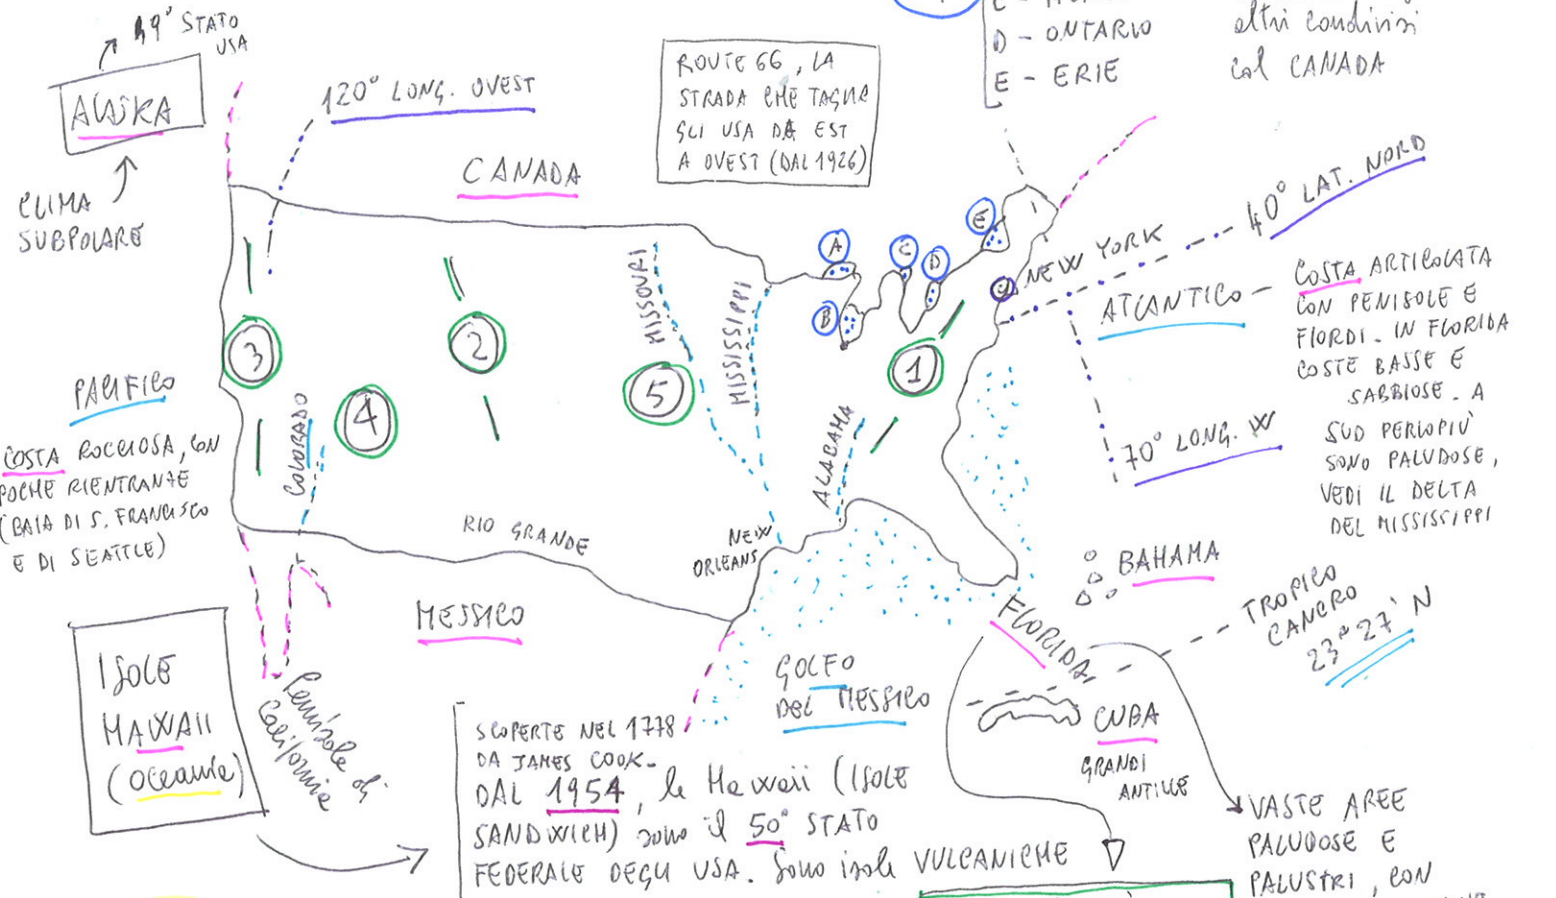 49° STATO
USA
ALASKA
CLIMA
SUBPOLARE
120° LONG. OVEST
CANADA
ROUTE 66, LA
STRADA CHE TAGLIA
GLI USA DA EST
A OVEST (DAL 1926)
D - ONTARIO
E - ERIE
altri condivisi
col CANADA
40° LAT. NORD
NEW YORK
ATLANTICO
COSTA ARTICOLATA
CON PENISOLE E
FIORDI. IN FLORIDA
COSTE BASSE E
SABBIOSE. A
SUD PERLOPIÙ
SONO PALUDOSE,
VEDI IL DELTA
DEL MISSISSIPPI
70° LONG. W
A
B
C
D
E
1
2
3
4
5
MISSOURI
MISSISSIPPI
ALABAMA
COLORADO
PACIFICO
COSTA ROCCIOSA, CON
POCHE RIENTRANZE
(BAIA DI S. FRANCISCO
E DI SEATTLE)
RIO GRANDE
NEW
ORLEANS
MESSICO
GOLFO
DEL MESSICO
FLORIDA
BAHAMA
TROPICO
CANCRO
23° 27' N
CUBA
GRANDI
ANTILLE
Penisola di
California
ISOLE
HAWAII
(oceania)
SCOPERTE NEL 1778
DA JAMES COOK.
DAL 1954, le Hawaii (ISOLE
SANDWICH) sono il 50° STATO
FEDERALE DEGLI USA. Sono isole VULCANICHE
VASTE AREE
PALUDOSE E
PALUSTRI, CON